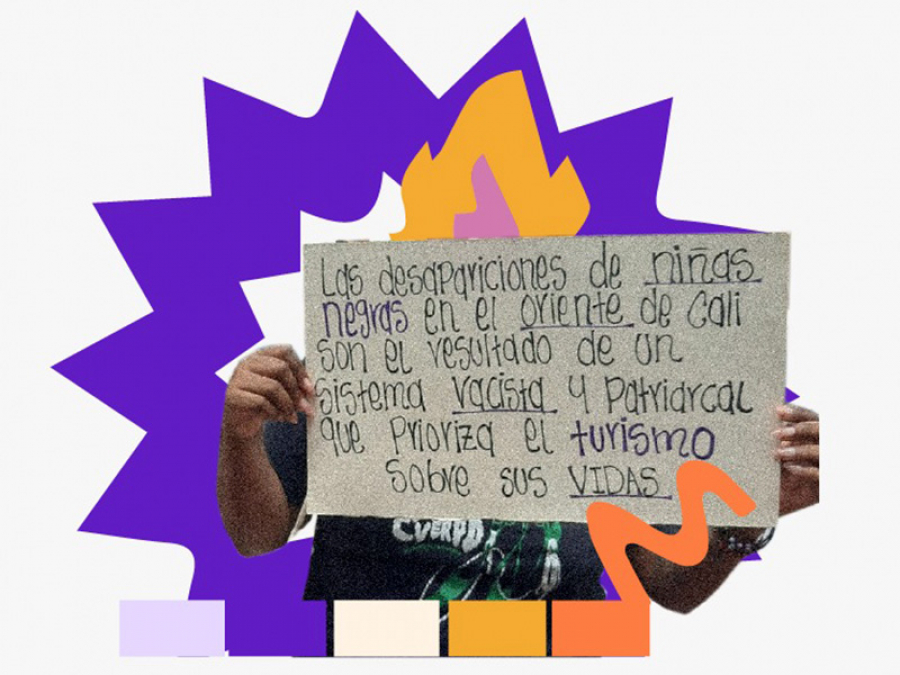 Las desapariciones de niñas
negras en el oriente de Cali
son el resultado de un
sistema racista y patriarcal
que prioriza el turismo
sobre sus VIDAS
CUERPO